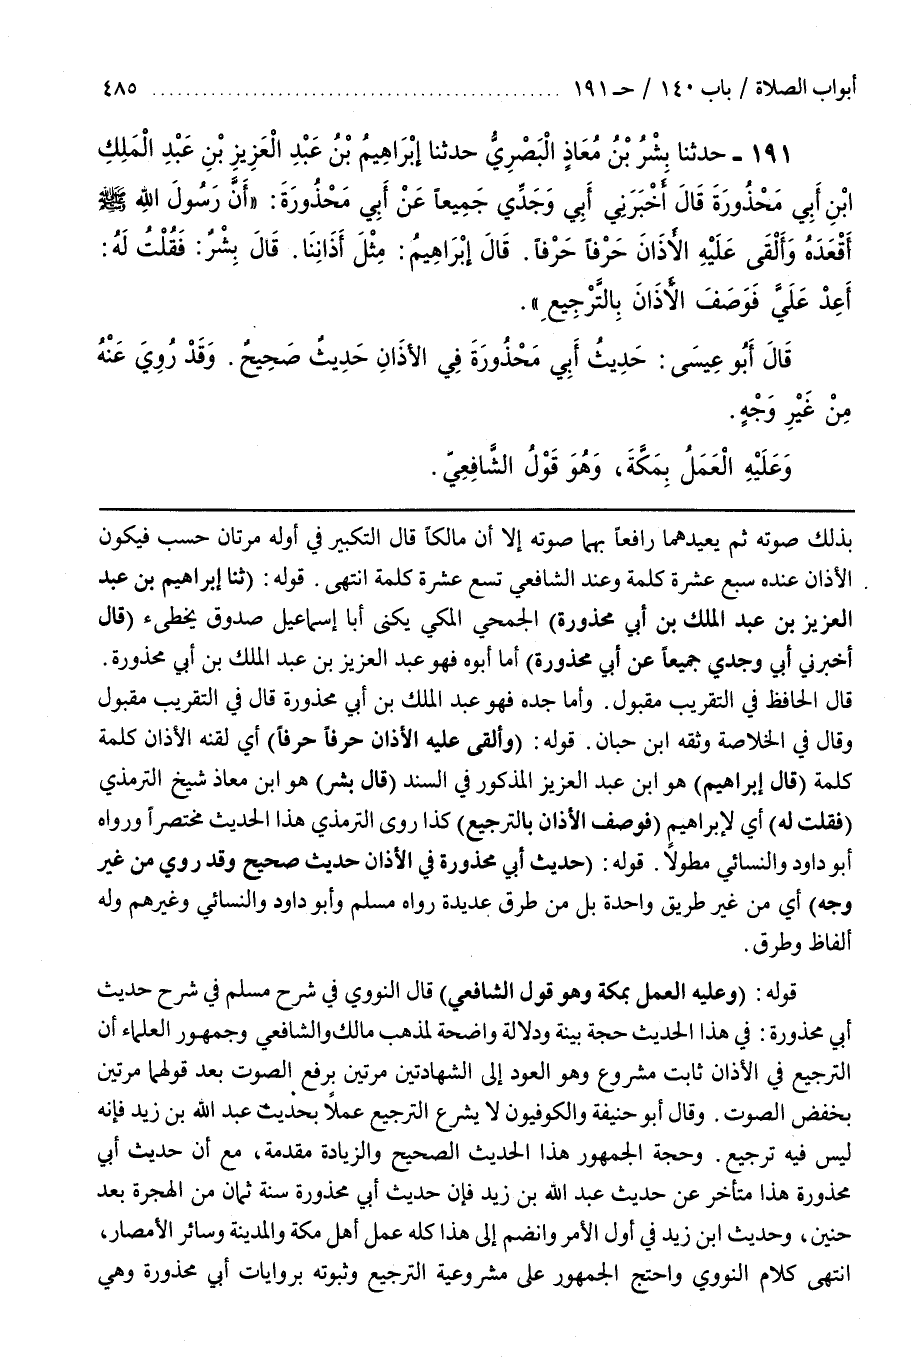 أبواب الصلاة / باب ١٤٠ / حـ ١٩١ ................................................ ٤٨٥
١٩١ ـ حدثنا بِشْرُ بْنُ مُعَاذٍ الْبَصْرِيُّ حدثنا إِبْرَاهِيمُ بْنُ عَبْدِ الْعَزِيزِ بْنِ عَبْدِ الْمَلِكِ
ابْنِ أَبِي مَحْذُورَةَ قَالَ أَخْبَرَنِي أَبِي وَجَدِّي جَمِيعاً عَنْ أَبِي مَحْذُورَةَ: «أَنَّ رَسُولَ اللهِ ﷺ
أَقْعَدَهُ وَأَلْقَى عَلَيْهِ الأَذَانَ حَرْفاً حَرْفاً. قَالَ إِبْرَاهِيمُ: مِثْلَ أَذَانِنَا. قَالَ بِشْرٌ: فَقُلْتُ لَهُ:
أَعِدْ عَلَيَّ فَوَصَفَ الأَذَانَ بِالتَّرْجِيعِ».
قَالَ أَبُو عِيسَى: حَدِيثُ أَبِي مَحْذُورَةَ فِي الأَذَانِ حَدِيثٌ صَحِيحٌ. وَقَدْ رُوِيَ عَنْهُ
مِنْ غَيْرِ وَجْهٍ.
وَعَلَيْهِ الْعَمَلُ بِمَكَّةَ، وَهُوَ قَوْلُ الشَّافِعِيّ.
بذلك صوته ثم يعيدهما رافعاً بهما صوته إلا أن مالكاً قال التكبير في أوله مرتان حسب فيكون
الأذان عنده سبع عشرة كلمة وعند الشافعي تسع عشرة كلمة انتهى. قوله: (ثنا إبراهيم بن عبد
العزيز بن عبد الملك بن أبي محذورة) الجمحي المكي يكنى أبا إسماعيل صدوق يخطىء (قال
أخبرني أبي وجدي جميعاً عن أبي محذورة) أما أبوه فهو عبد العزيز بن عبد الملك بن أبي محذورة.
قال الحافظ في التقريب مقبول. وأما جده فهو عبد الملك بن أبي محذورة قال في التقريب مقبول
وقال في الخلاصة وثقه ابن حبان. قوله: (وألقى عليه الأذان حرفاً حرفاً) أي لقنه الأذان كلمة
كلمة (قال إبراهيم) هو ابن عبد العزيز المذكور في السند (قال بشر) هو ابن معاذ شيخ الترمذي
(فقلت له) أي لإبراهيم (فوصف الأذان بالترجيع) كذا روى الترمذي هذا الحديث مختصراً ورواه
أبو داود والنسائي مطولاً. قوله: (حديث أبي محذورة في الأذان حديث صحيح وقد روي من غير
وجه) أي من غير طريق واحدة بل من طرق عديدة رواه مسلم وأبو داود والنسائي وغيرهم وله
ألفاظ وطرق.
قوله: (وعليه العمل بمكة وهو قول الشافعي) قال النووي في شرح مسلم في شرح حديث
أبي محذورة: في هذا الحديث حجة بينة ودلالة واضحة لمذهب مالك والشافعي وجمهور العلماء أن
الترجيع في الأذان ثابت مشروع وهو العود إلى الشهادتين مرتين برفع الصوت بعد قولهما مرتين
بخفض الصوت. وقال أبو حنيفة والكوفيون لا يشرع الترجيع عملاً بحديث عبد الله بن زيد فإنه
ليس فيه ترجيع. وحجة الجمهور هذا الحديث الصحيح والزيادة مقدمة، مع أن حديث أبي
محذورة هذا متأخر عن حديث عبد الله بن زيد فإن حديث أبي محذورة سنة ثمان من الهجرة بعد
حنين، وحديث ابن زيد في أول الأمر وانضم إلى هذا كله عمل أهل مكة والمدينة وسائر الأمصار،
انتهى كلام النووي واحتج الجمهور على مشروعية الترجيع وثبوته بروايات أبي محذورة وهي